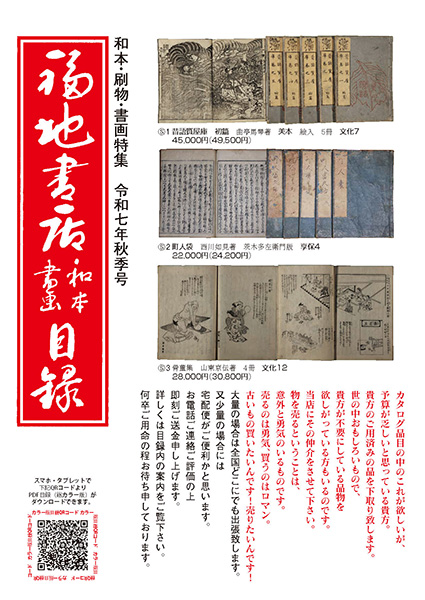 福地書店
和本
書画
目録
和本・刷物・書画特集　令和七年秋季号
Ⓢ1 昔語質屋庫　初篇　曲亭馬琴著　美本　絵入　5冊　文化7
45,000円(49,500円)
Ⓢ2 町人袋　西川如見著　茨木多左衛門版　享保4
22,000円(24,200円)
Ⓢ3 骨董集　山東京伝著　4冊　文化12
28,000円(30,800円)
カタログ品目の中のこれが欲しいが、
予算が乏しいと思っている貴方。
貴方のご用済みの品を下取り致します。
世の中おもしろいもので、
貴方が不要にしている品物を
欲しがっている方もいるのです。
当店にその仲介をさせて下さい。
物を売るということは、
意外と勇気のいるものです。
売るのは勇気、買うのはロマン。
古いもの買いたいんです！売りたいんです！
大量の場合は全国どこにでも出張致します。
又少量の場合には
宅配便がご便利かと思います。
お電話ご連絡ご評価の上
即刻ご送金申し上げます。
詳しくは目録内の案内をご覧下さい。
何卒ご用命の程お待ち申しております。
スマホ・タブレットで
下記QRコードより
PDF目録（総カラー版）が
ダウンロードできます。